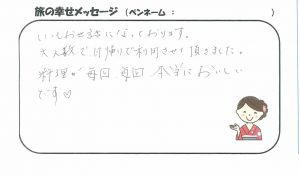 旅の幸せメッセージ (ペンネーム: )
いつもお世話になっております。
大人数で日帰りで利用させて頂きました。
料理が毎回毎回本当においしい
です♡